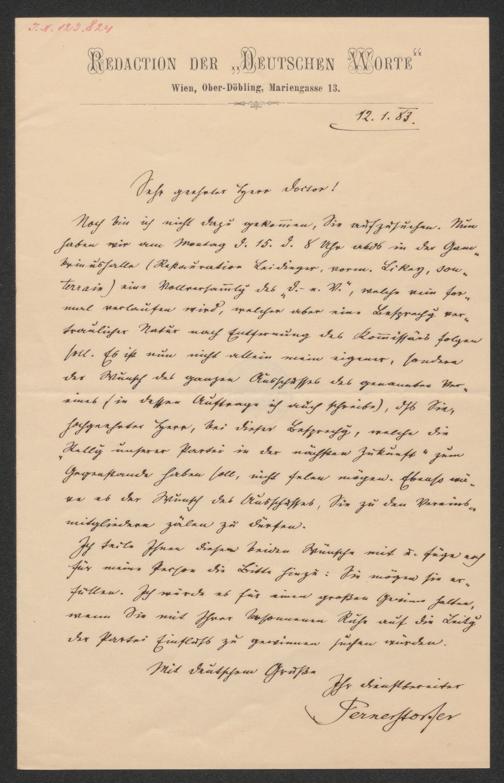 I.N. 123.824
REDACTION DER „DEUTSCHEN WORTE“
Wien, Ober-Döbling, Mariengasse 13.
12.1.83.
Sehr geehrter Herr Doctor!
Noch bin ich nicht dazu gekommen, Sie aufzusuchen. Nun
haben wir am Montag d. 15. d. 8 Uhr abds in der Gam-
brinushalle (Restauration Leidinger, vorm. Likey, sou-
terrain) eine Vollversammlg des „D. n. V.“, welche rein for-
mal verlaufen wird, welcher aber eine Besprechg ver-
traulicher Natur nach Entfernung des Kommissärs folgen
soll. Es ist nun nicht allein mein eigener, sondern
der Wunsch des ganzen Ausschusses des genannten Ver-
eines (in dessen Auftrage ich auch schreibe), dss Sie,
hochgeehrter Herr, bei dieser Besprechg, welche die
„Stellg unserer Partei in der nächsten Zukunft“ zum
Gegenstande haben soll, nicht felen mögen. Ebenso wä-
re es der Wunsch des Ausschusses, Sie zu den Vereins-
mitgliedern zälen zu dürfen.
Ich teile Ihnen diesen beiden Wünsche mit u. füge noch
für meine Person die Bitte hinzu: Sie mögen sie er-
füllen. Ich würde es für einen großen Gewinn halten,
wenn Sie mit Ihrer besonnenen Ruhe auf die Leitg
der Partei Einfluss zu gewinnen suchen würden.
Mit deutschem Gruße
Ihr dienstbereiter
Pernerstorfer